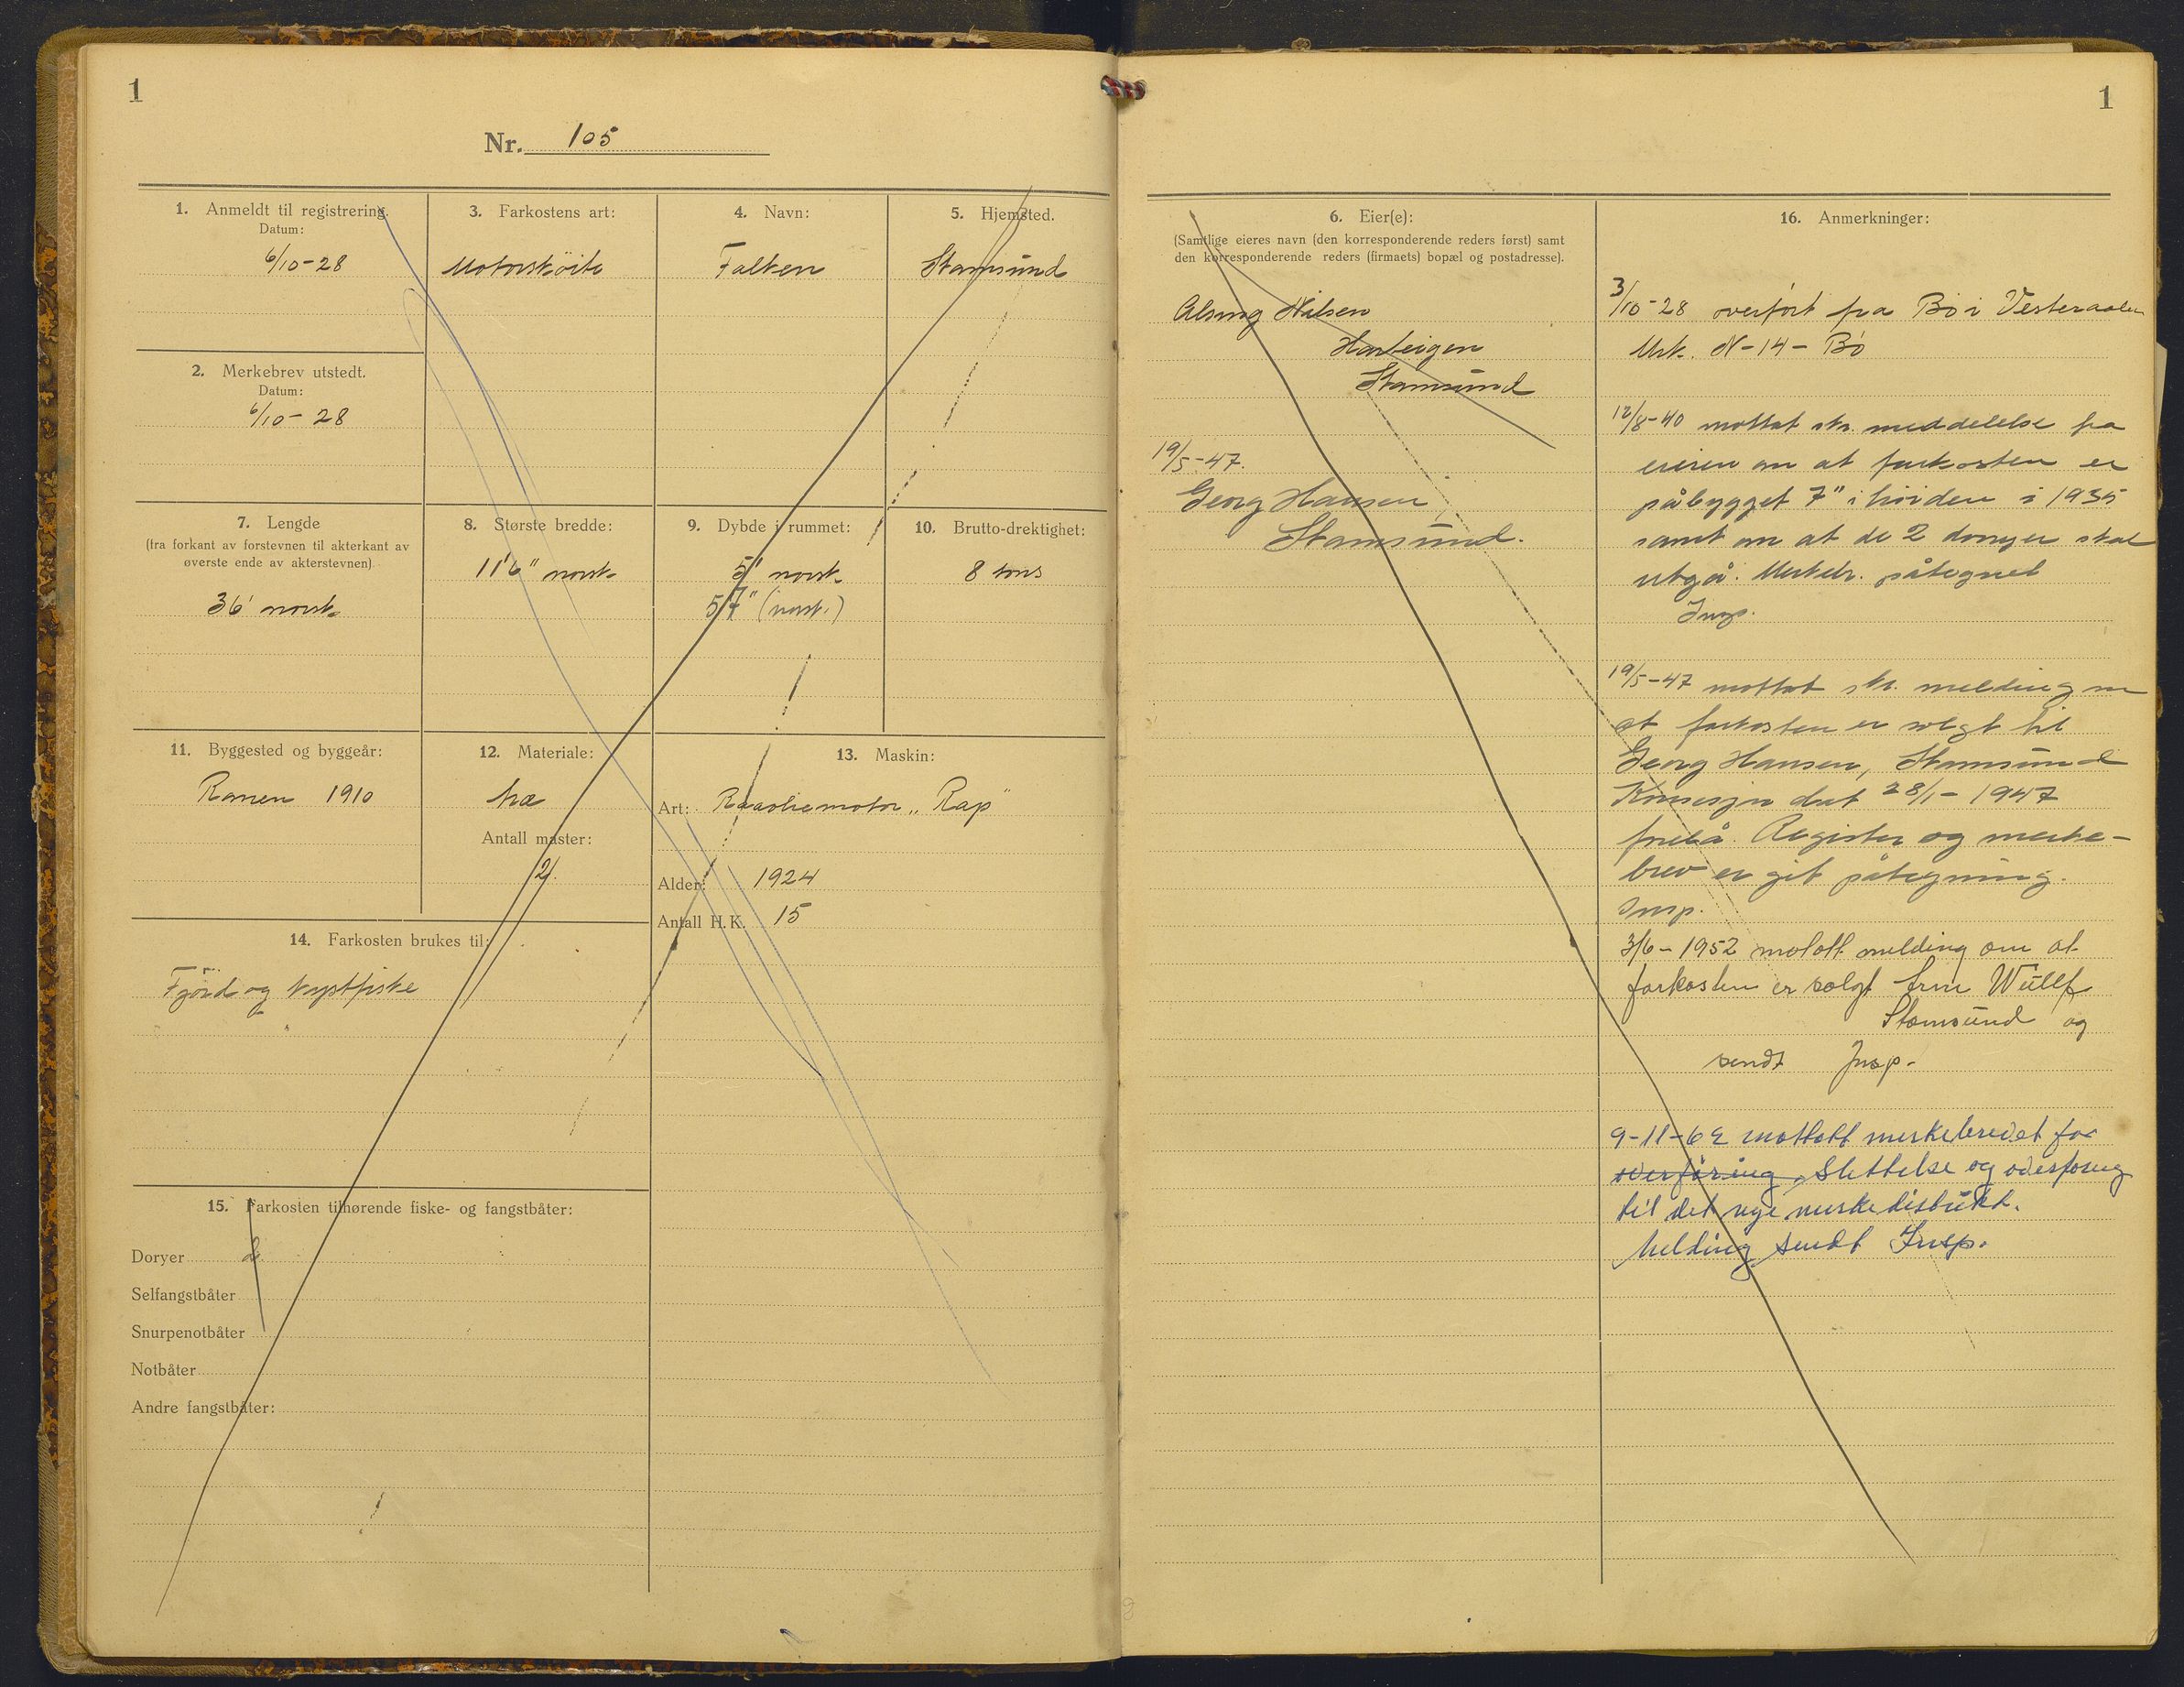 1
Nr. 105
1. Anmeldt til registrering.
Datum:
6/10-28
2. Merkebrev utstedt.
Datum:
6/10-28
3. Farkostens art:
Motorsköite
4. Navn:
Falken
5. Hjemsted.
Stamsund
7. Lengde
(fra forkant av forstevnen til akterkant av
øverste ende av akterstevnen)
36' norsk
8. Største bredde:
11'6" norsk
9. Dybde i rummet:
5' norsk
5'7" (norsk.)
10. Brutto-drektighet:
8 tons
11. Byggested og byggeår:
Ranen 1910
12. Materiale:
træ
Antall master:
2
13. Maskin:
Art: Raaoliemotor „Rap"
Alder: 1924
Antall H.K. 15
14. Farkosten brukes til:
Fjord og kystfiske
15. Farkosten tilhørende fiske- og fangstbåter:
Doryer 2
Selfangstbåter
Snurpenotbåter
Notbåter
Andre fangstbåter:
1
6. Eier(e):
(Samtlige eieres navn (den korresponderende reders først) samt
den korresponderende reders (firmaets) bopæl og postadresse).
Alsing Nilsen
Stamsund
19/5-47.
Georg Hansen,
Stamsund.
16. Anmerkninger:
3/10-28 overført fra Bø i Vesteraalen
Mrk. N-14-Bø
12/8-40 mottat skr. meddelelse fra
eieren om at farkosten er
påbygget 7" i høiden i 1935
samt om at de 2 doryer skal
utgå. Merkebr. påtegnet
Insp.
19/5-47 mottat skr. melding om
at farkosten er solgt til
Georg Hansen, Stamsund
Konsesjon dat 28/1-1947
forelå. Register og merke-
brev er git påtegning.
Insp.
3/6-1952 motatt melding om at
farkosten er solgt Arne Wulff
Stamsund og
sendt Insp.
9-11-62 mottatt merkebrevet for
overføring, slettelse og overføring
til det nye merkedistrikt.
Melding sendt Insp.